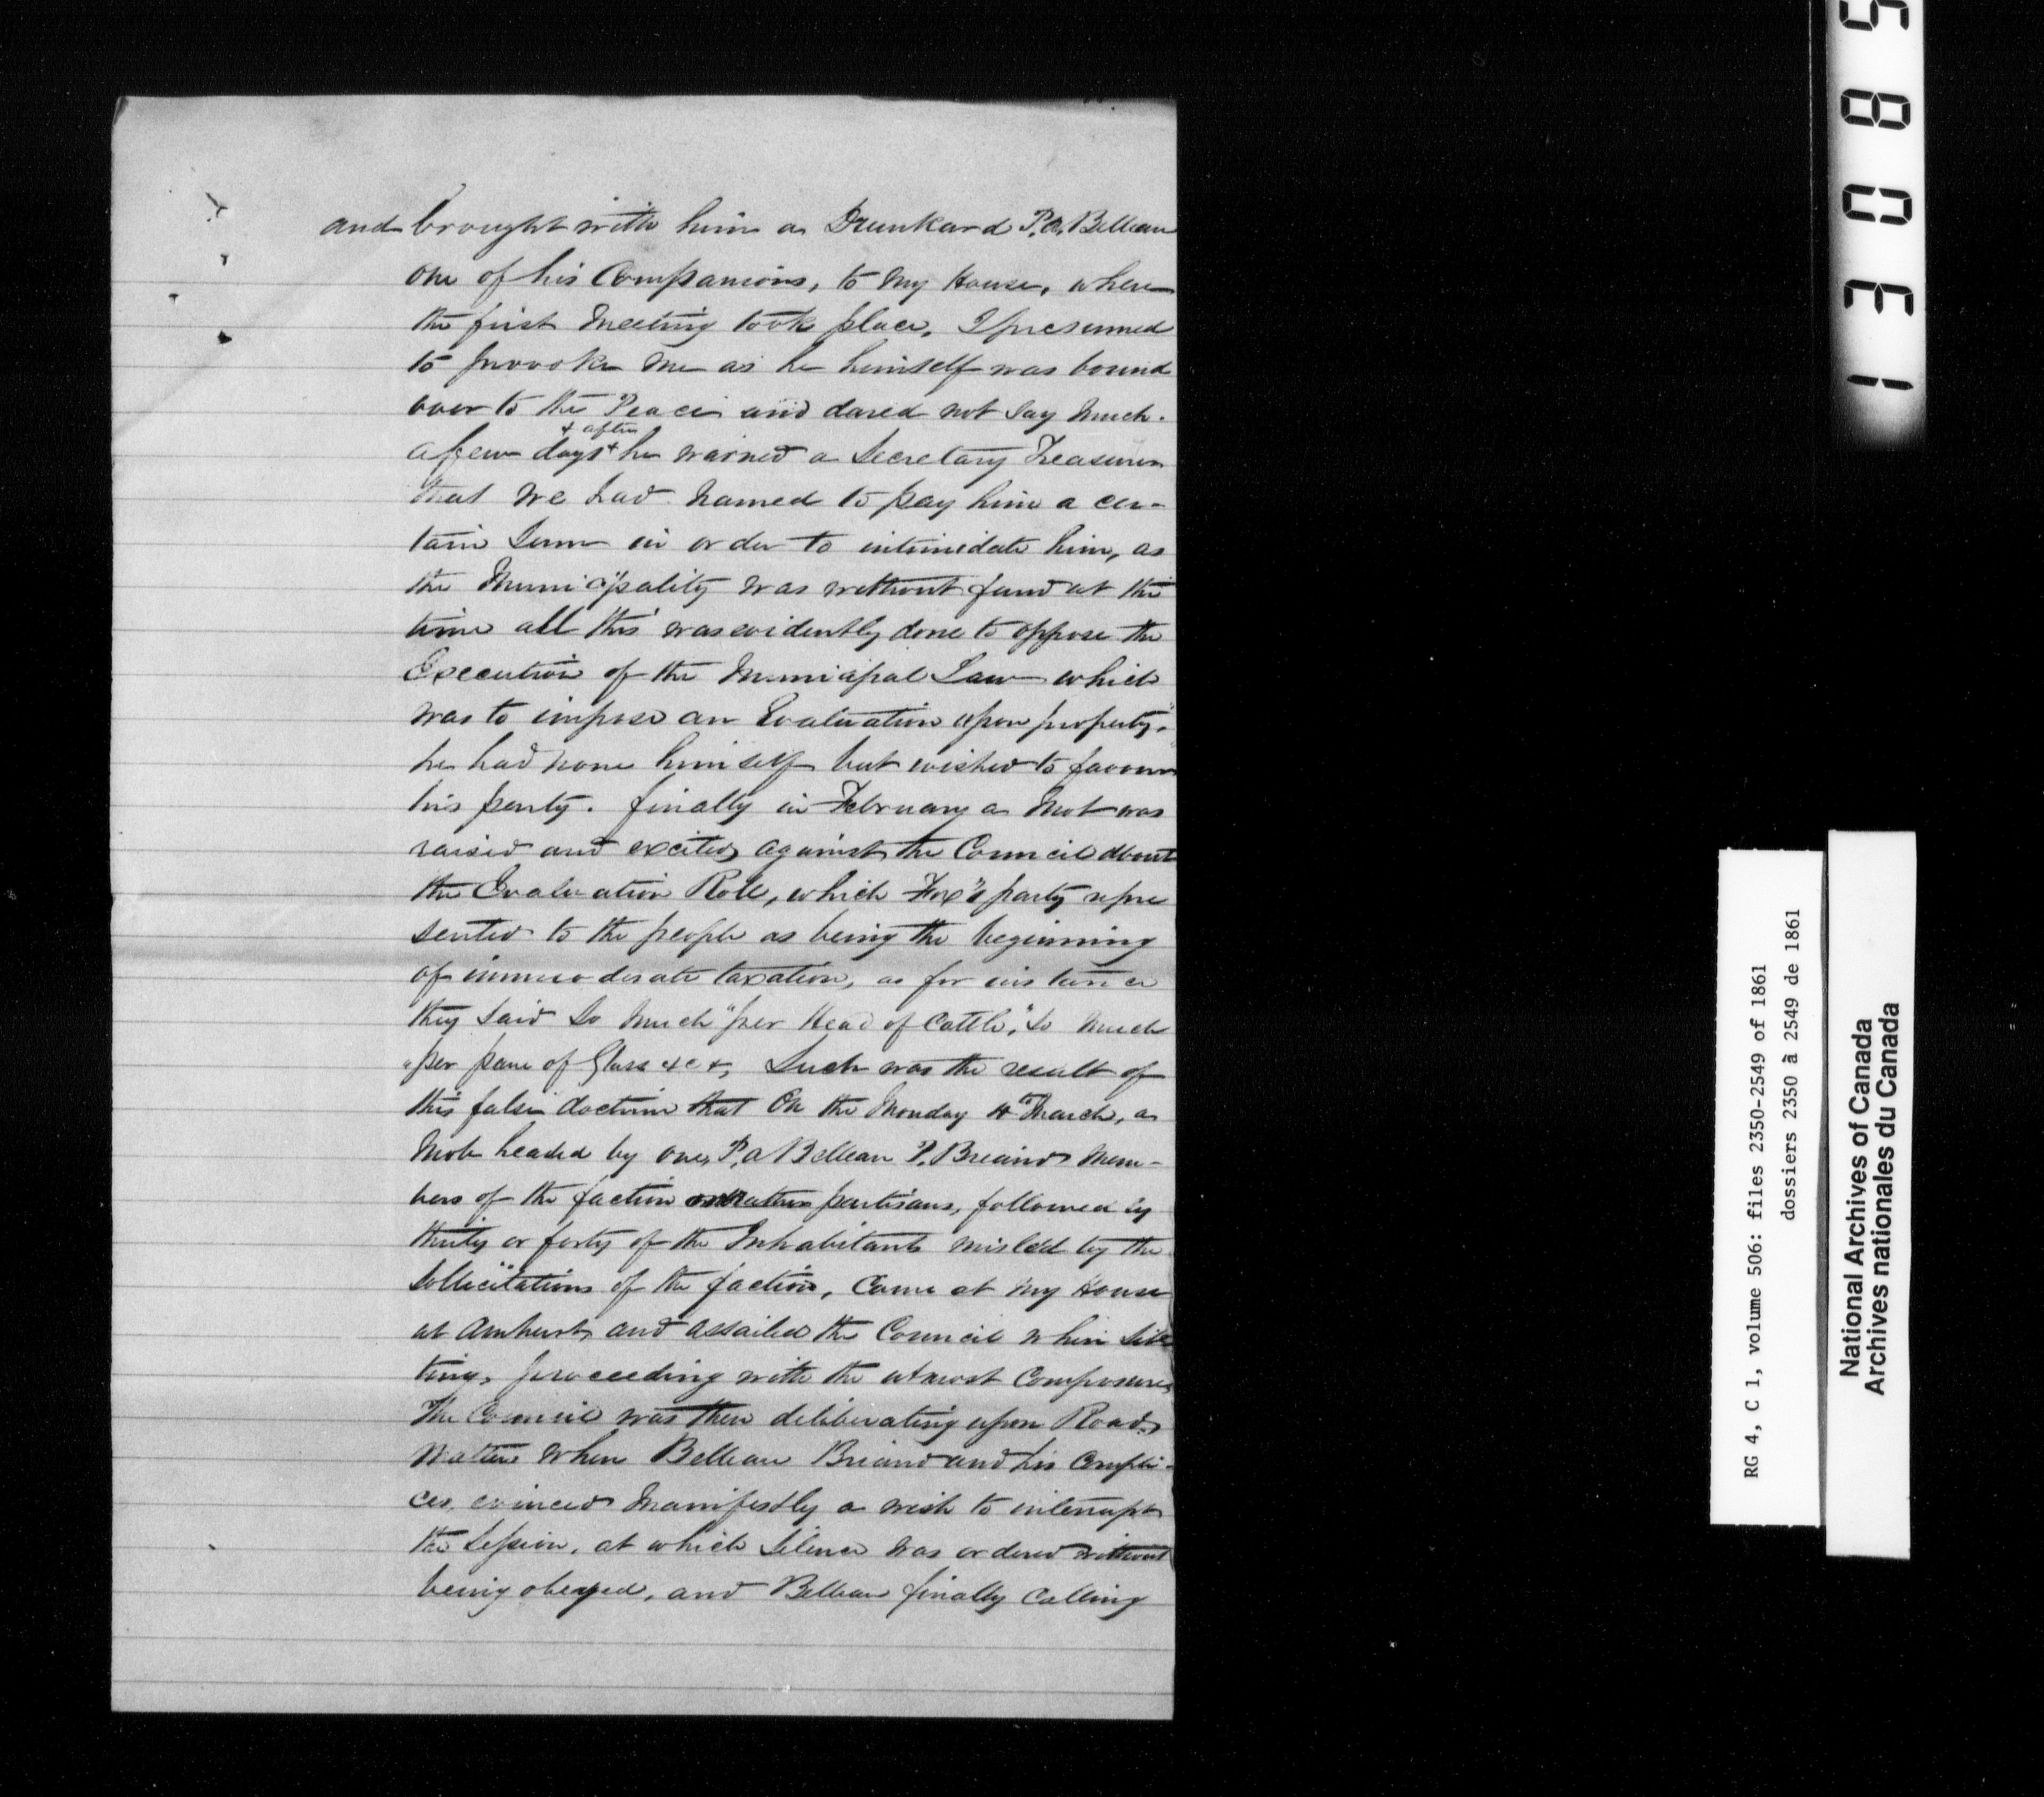 and brought with him a Drunkard P. A. Belleau
one of his Companions, to my House, where
the first Meeting took place, I presumed
to provoke me as he himself was bound
over to the Peace and dared not say much.
+ after
a few days + he warned a Secretary Treasurer
that we had named to pay him a cer-
tain Sum in order to intimidate him, as
the Municipality was without fund at the
time all this was evidently done to oppose the
Execution of the Municipal Law which
was to impose an Evaluation upon property,
he had none himself but wished to favour
his party. finally in February a was
raised and excited against the Council about
the Evaluation Roll, which Fox's party repre
sented to the people as being the beginning
of immoderate taxation, as for instance
they said so much "per Head of Cattle," so much
"per pane of Glass &c &, Such was the result of
this false doctrine that On the Monday March, a
Mob headed by one, P. A Belleau P. Briand Mem-
bers of the faction partisans, followed by
thirty or forty of the Inhabitants misled by the
Sollicitations of the faction, Came at my House
at Amherst, and assailed the Council when Sit
ting, proceeding with the utmost Composure,
The Council was then deliberating upon Road
Matters when Belleau Briand and his Compli-
ces evinced Manifestly a wish to interrupt
the Session, at which Silence was ordered without
being obeyed, and Belleau finally Calling
13085
RG 4, C 1, volume 506: files 2350-2549 of 1861
dossiers 2350 à 2549 de 1861
National Archives of Canada
Archives nationales du Canada